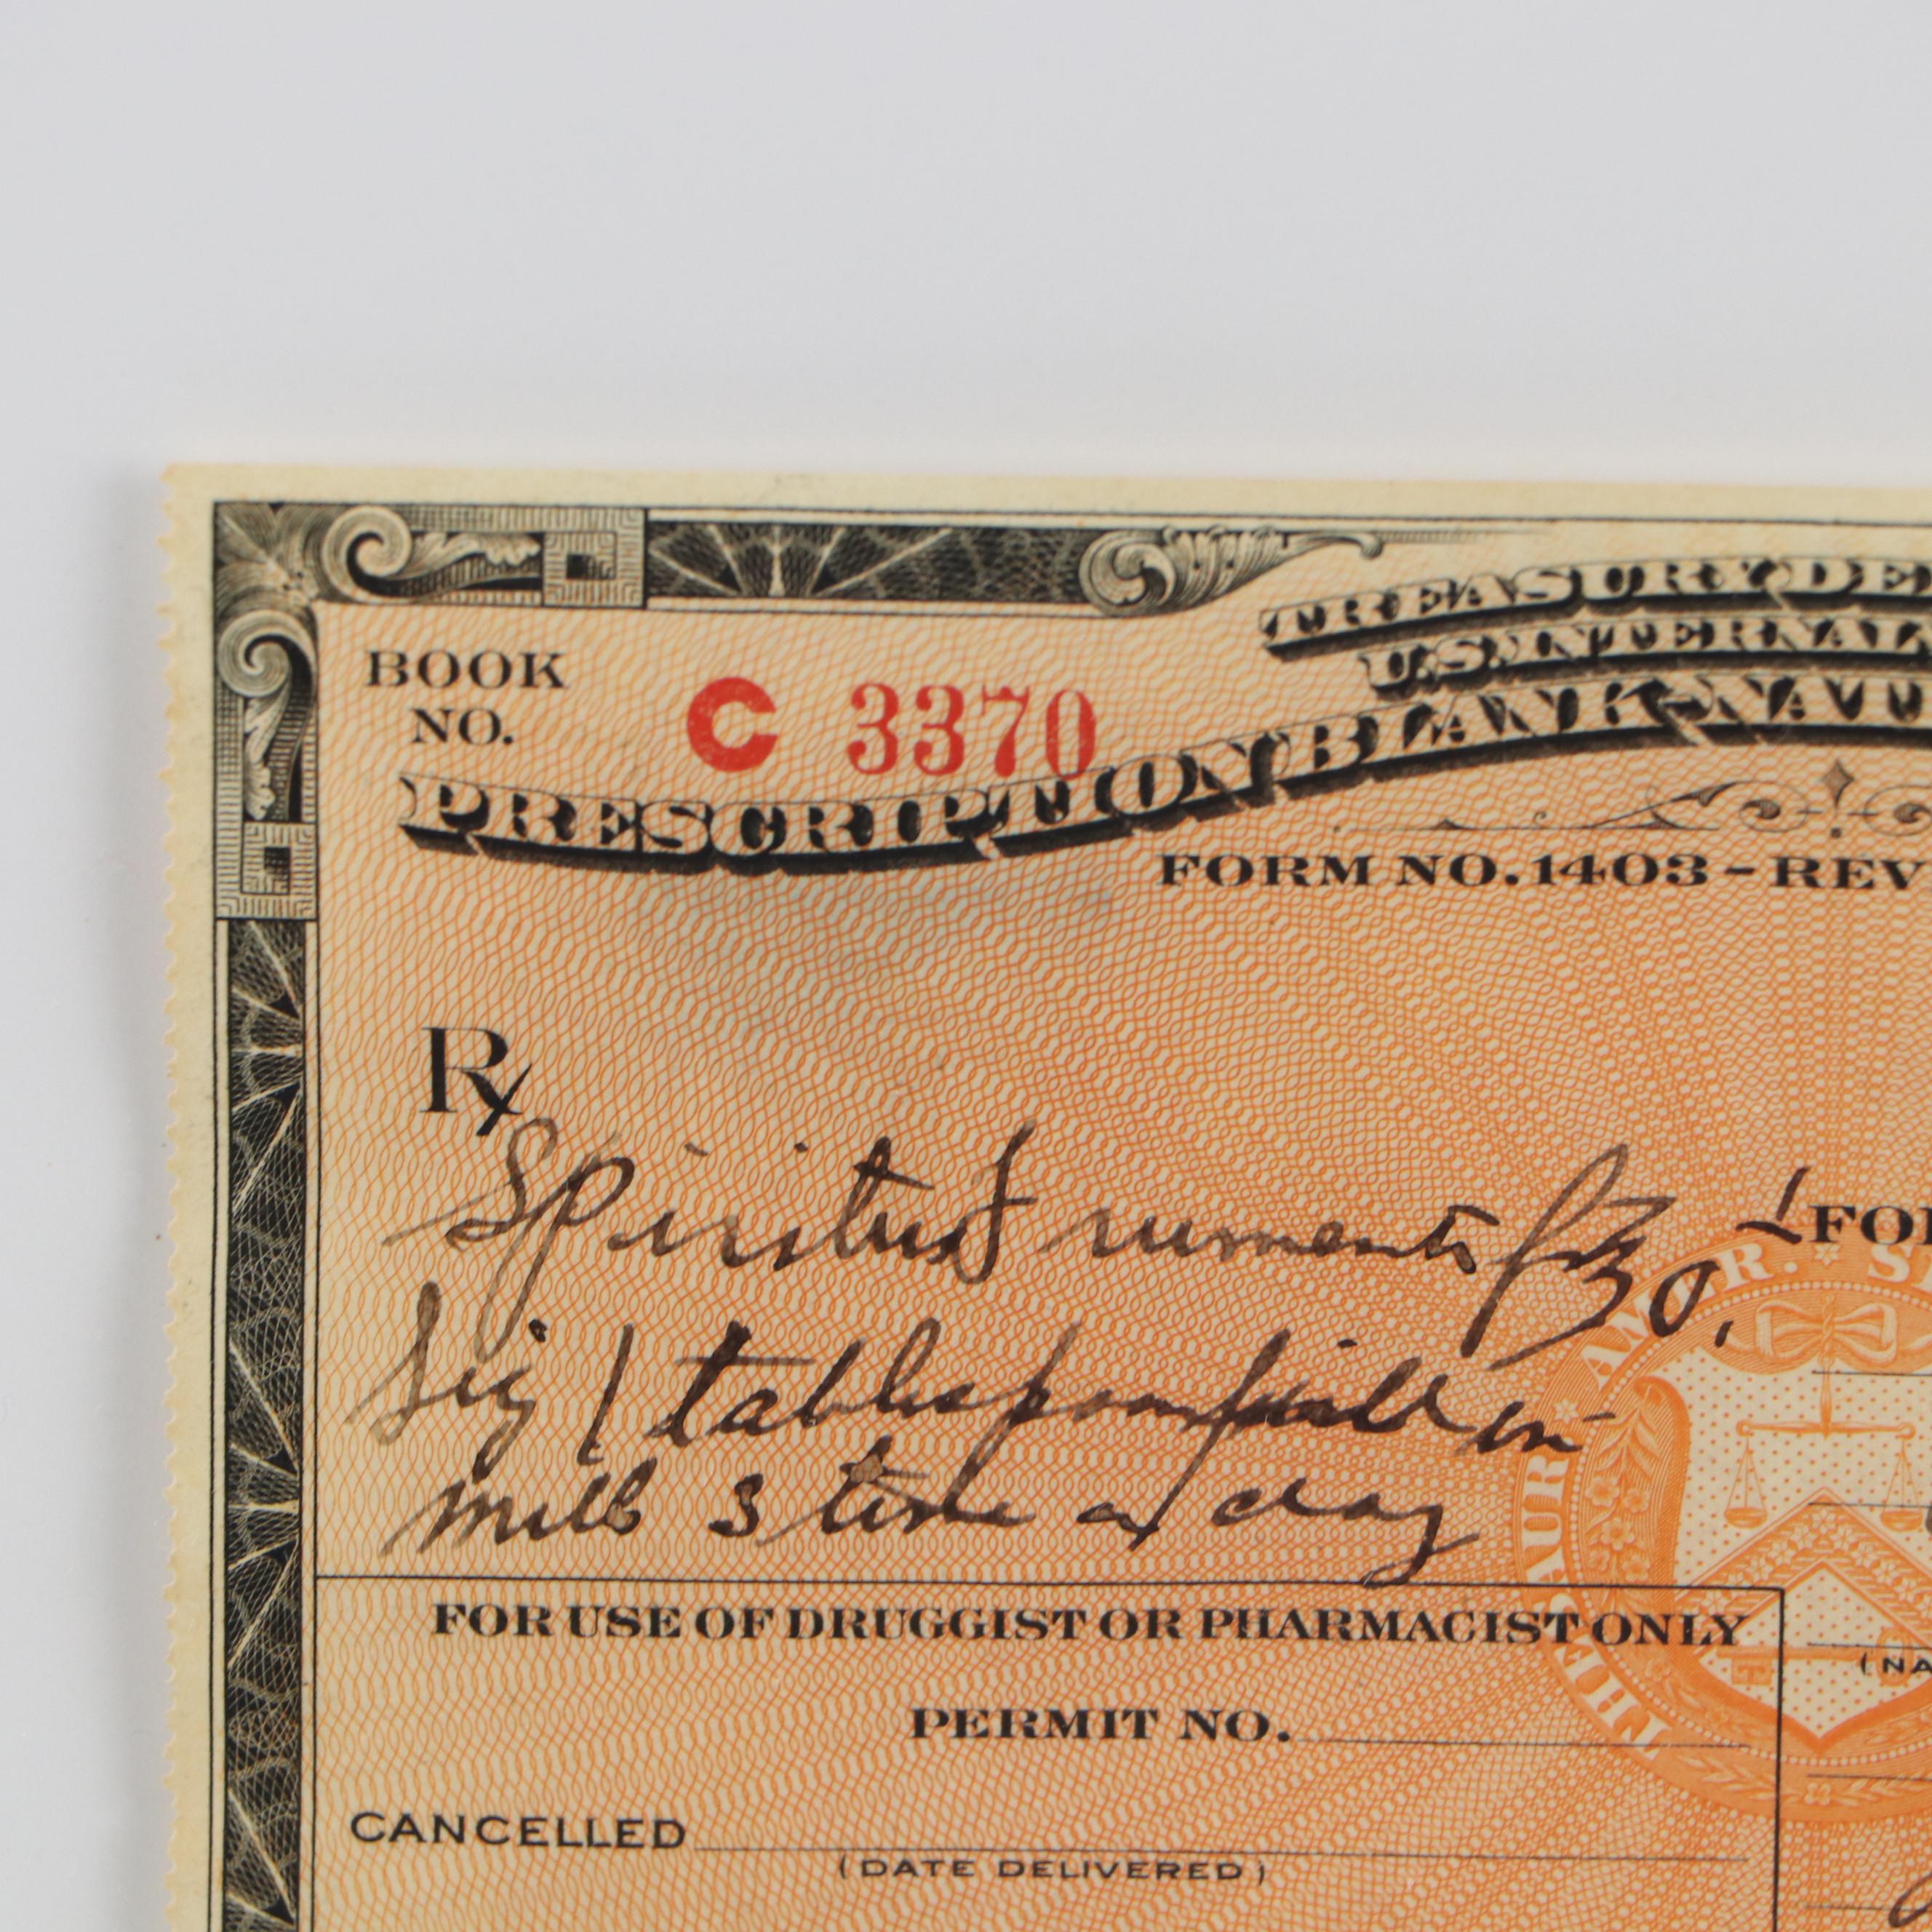 TREASURY DE
U.S. INTERNAL
BOOK NO. C 3370
PRESCRIPTION BLANK-NAT
FORM NO. 1403 - REV
Rx
Spiritus frumenti
FO
Sig 1 tablespoonfull in
milk 3 time a day
AMER. S
THESAUR
FOR USE OF DRUGGIST OR PHARMACIST ONLY
(NA
PERMIT NO.
CANCELLED
(DATE DELIVERED)